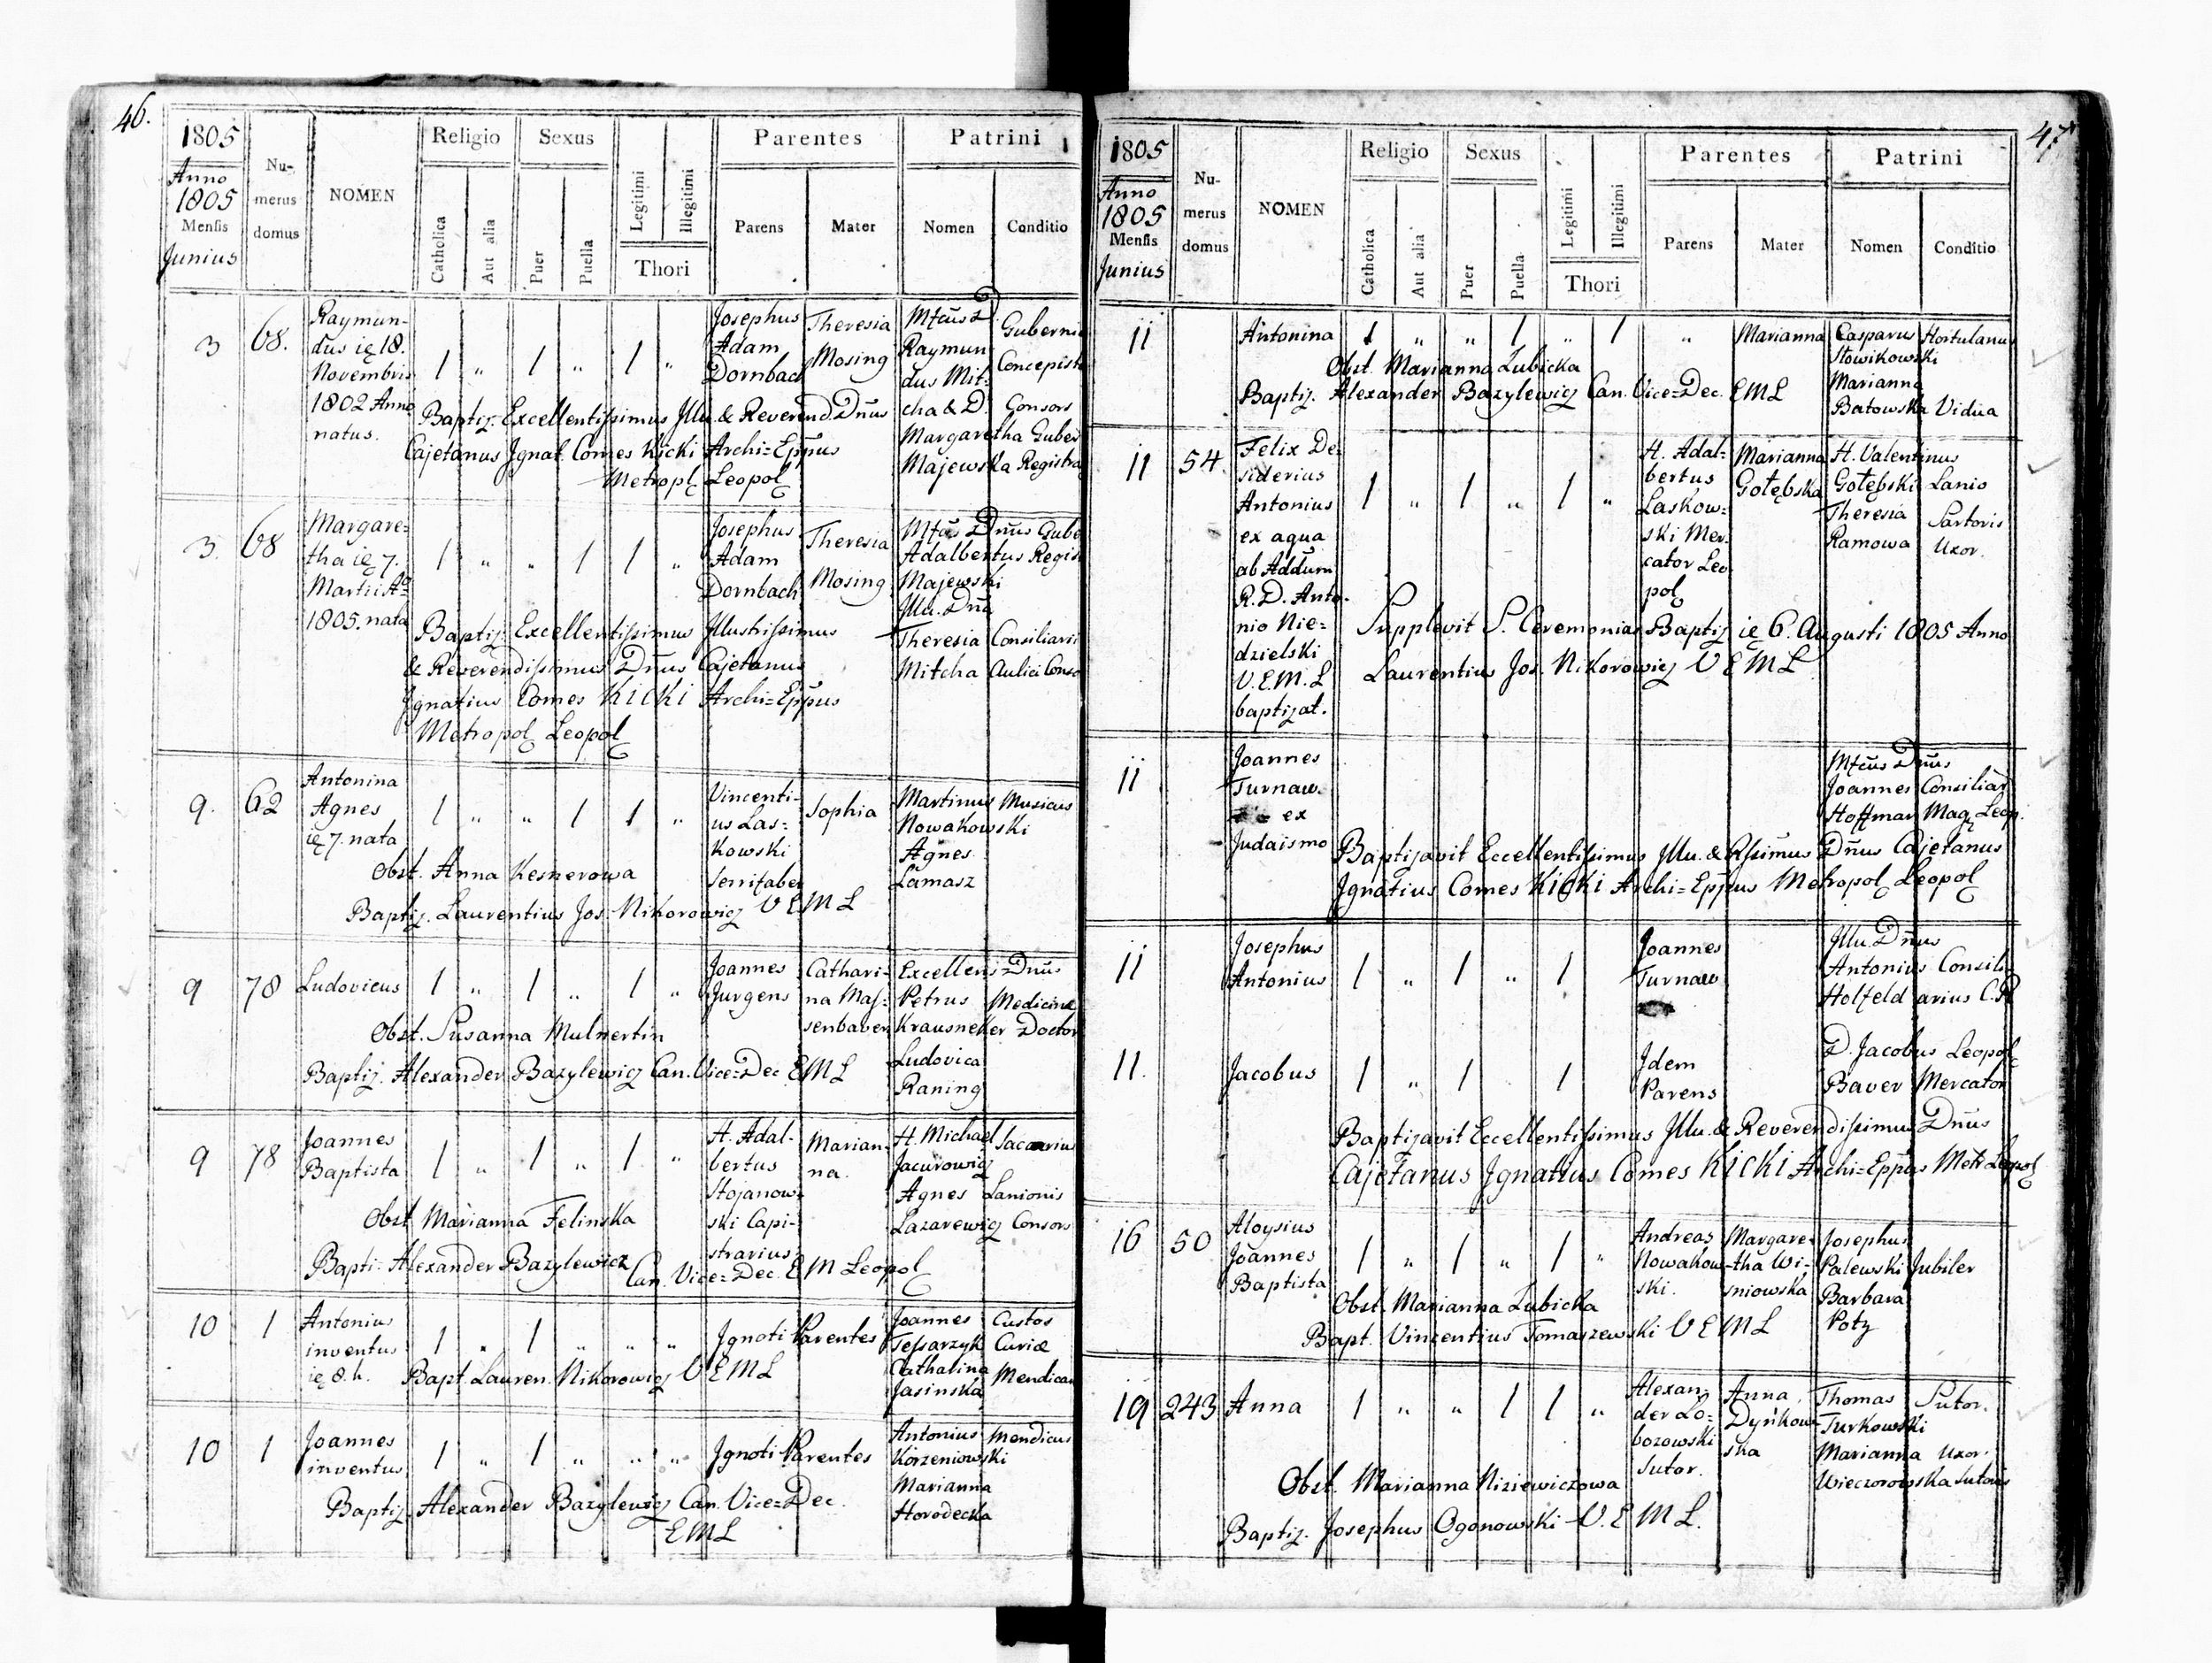 46.
1805
Anno
1805
Mensis
Junius
Nu-
merus
domus
NOMEN
Religio
Catholica
Aut alia
Sexus
Puer
Puella
Legitimi
Illegitimi
Thori
Parentes
Parens
Mater
Patrini
Nomen
Conditio
3 68.
Raymun-
dus ię 18.
Novembris
1802 Anno
natus.
1 " 1 " 1 "
Josephus
Adam
Dornbach
Theresia
Mosing
Mfcus D
Raymun
dus Mit-
cha & D.
Margaretha
Majewska
Guberni
Concepist
Consors
Guber
Registra
Baptiz. Excellentissimus Jllu. & Reverend. Dnus
Cajetanus Jgnat. Comes Kicki Archi=Eppus
Metropl. Leopol
3. 68
Margare=
tha ię 7.
Martii Ao
1805. nata
1 " " 1 1 "
Josephus
Adam
Dornbach
Theresia
Mosing
Mfcus Dnus Gube
Adalbertus Regis
Majewski
Jllu. Dna
Theresia Consiliarii
Mitcha Aulici Conso
Baptiz. Excellentissimus Jllustrissimus
& Reverendissimus Dnus Cajetanus
Jgnatius Comes Kicki Archi=Eppus
Metropol Leopol
9. 62
Antonina
Agnes
ię 7. nata
1 " " 1 1 "
Vincenti-
us Las=
kowski
Serrifaber
Sophia
Martinus Musicus
Nowakowski
Agnes
Lamasz
Obst. Anna Kesnerowa
Baptiz. Laurentius Jos. Nikorowicz V E M L
9 78
Ludovicus
1 " 1 " 1 "
Joannes
Jurgens
Cathari-
na Mas-
senbaver
Excellens Dnus
Petrus Medicinæ
Krausneker Doctor
Ludovica
Raning
Obst. Susanna Mulnertin
Baptiz. Alexander Bazylewicz Can. Vice=Dec E M L
9 78
Joannes
Baptista
1 " 1 " 1 "
H. Adal-
bertus
Stojanow-
ski Capi-
strarius
Marian-
na.
H. Michael
Jacurowicz
Agnes Lanionis
Lazarewicz Consors
Obst. Marianna Felinska
Bapti: Alexander Bazylewicz
Can. Vice=Dec. E M Leopol
10 1
Antonius
inventus
ię 8. h.
1 " 1 " " "
Jgnoti Parentes
Joannes Custos
Tessarzyk Curiæ
Cathalina
Jasinska Mendican
Bapt. Lauren. Nikorowicz V E M L
10 1
Joannes
inventus
1 " 1 " " "
Jgnoti Parentes
Antonius Mendicus
Korzeniowski
Marianna
Horodecka
Baptiz. Alexander Bazylewicz Can. Vice=Dec.
E M L
47
1805
Anno
1805
Mensis
Junius
Nu-
merus
domus
NOMEN
Religio
Catholica
Aut alia
Sexus
Puer
Puella
Legitimi
Illegitimi
Thori
Parentes
Parens
Mater
Patrini
Nomen
Conditio
11
Antonina
1 " " 1 " 1
"
Marianna
Casparus Hortulanus
Stowikowski
Marianna
Batowska Vidua
Obst. Marianna Lubicka
Baptiz. Alexander Bazylewicz Can. Vice=Dec. E M L
11 54.
Felix De-
siderius
Antonius
ex aqua
ab Addum
R. D. Anto-
nio Nie=
dzielski
V. E. M. L
baptizat.
1 " 1 " 1 "
H. Adal=
bertus
Laskow=
ski Mer-
cator Leo
pol
Marianna
Gołębska
H. Valentinus
Gołębski Lanio
Theresia Sartoris
Ramowa Uxor.
Supplevit S. Ceremonias Baptiz ię 6. Augusti 1805 Anno
Laurentius Jos. Nikorowicz V E M L
11
Joannes
Turnaw.
ex
Judaismo
Mfcus Dnus
Joannes Consiliar
Hoffman Mag. Leop.
Baptizavit Eccellentissimus Jllu. & Rssimus Dnus Cajetanus
Jgnatius Comes Kicki Archi=Eppus Metropol Leopol
11
Josephus
Antonius
1 " 1 " 1
Joannes
Turnaw
Jllu. Dnus
Antonius Consili
Holfeld arius C. R
11.
Jacobus
1 " 1 1
Jdem
Parens
D. Jacobus Leopol
Baver Mercator
Baptizavit Eccellentissimus Jllu. & Reverendissimus Dnus
Cajetanus Jgnatius Comes Kicki Archi=Eppus Metr Leopol
16 50
Aloysius
Joannes
Baptista
1 " 1 " 1 "
Andreas
Nowakow-
ski.
Margare-
tha Wi-
sniowska
Josephus
Palewski Jubiler
Barbara
Potz
Obst. Marianna Lubicka
Bapt. Vincentius Tomaszewski V E M L
19 243
Anna
1 " " 1 1 "
Alexan-
der Lo=
bozowski
Sutor.
Anna
Dyńkow-
ska
Thomas Sutor.
Turkowski
Marianna Uxor.
Wieczorowska Sutoris
Obst. Marianna Niziewiczowa
Baptiz. Josephus Ogonowski V. E M L.